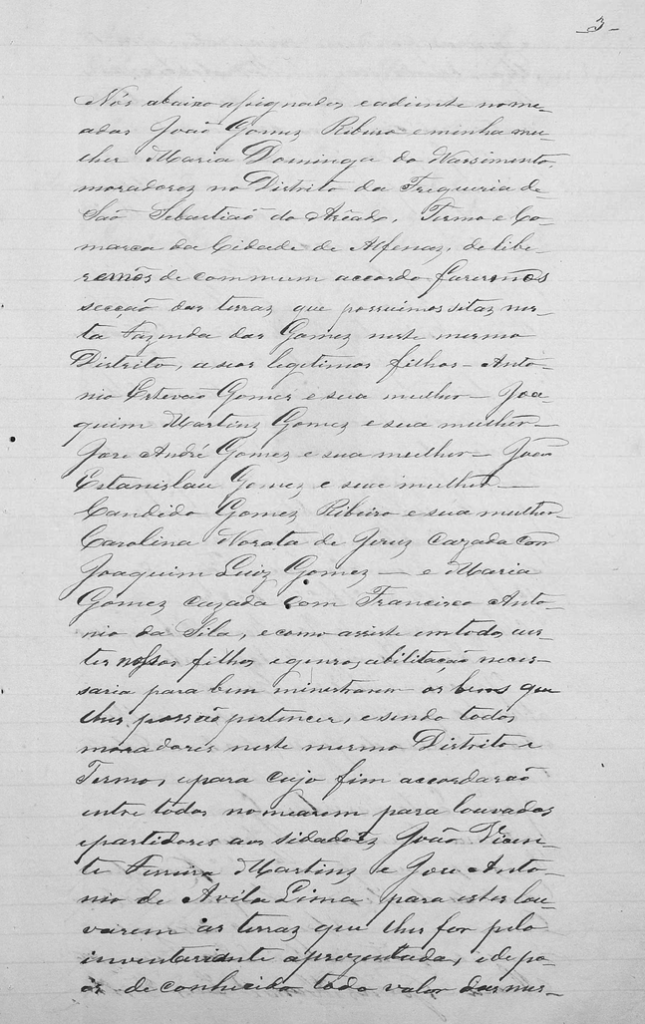 3-
Nós abaixo assignados e adiente nome-
adas João Gomez Ribeiro e minha mu-
lher Maria Dominga do Nassimento,
moradorez no Distrito da Frigueria de
São Sebastiaõ do Areado, Termo e Co-
marca da Cidade de Alfenaz, de libe-
remos de commum accordo fazermos
secção das terraz que possuimos sitaz nes-
ta Fazenda dos Gomez neste mesmo
Distrito, a seos legitimos filhos - Anto-
nio Estevaõ Gomez e sua mulher - Joa
quim Martinz Gomez e sua mulher -
Jose André Gomez e sua mulher - João
Estanislau Gomez e sua mulher -
Candido Gomez Ribeiro e sua mulher -
Carolina Norata de Jezuz cazada com
Joaquim Luiz Gomez - e Maria
Gomez cazada com Francisco Anto-
nio da Sila, e como assiste em todos
tes nossos filhos e genros, abilitação neces-
saria para bem menistrarem os bens que
lhes possão pertencer, e sendo todos
moradores neste mesmo Distrito e
Termo, e para cujo fim accordaraõ
entre todos nomearem para louvados
e partidores aos sidadoẽs João Vicen-
te Ferreira Martinz e Jose Anto-
nio de Avila Lima para estes lou-
varem as terraz que lhes for pelo
inventariante aprezentada, e depo-
is de conhecido todo valor das mes-